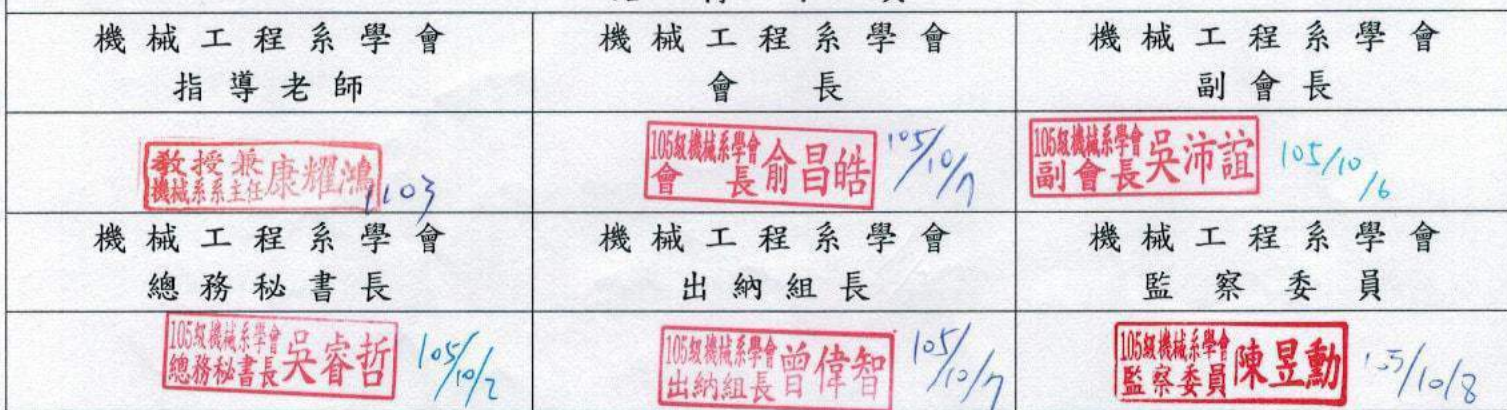 機械工程系學會 機械工程系學會 機械工程系學會
指導老師 會長 副會長
教授兼
機械系系主任 康耀鴻 1103
105級機械系學會
會長 俞昌皓 105/10/7
105級機械系學會
副會長 吳沛誼 105/10/6
機械工程系學會 機械工程系學會 機械工程系學會
總務秘書長 出納組長 監察委員
105級機械系學會
總務秘書長 吳睿哲 105/10/2
105級機械系學會
出納組長 曾偉智 105/10/7
105級機械系學會
監察委員 陳昱勳 105/10/8